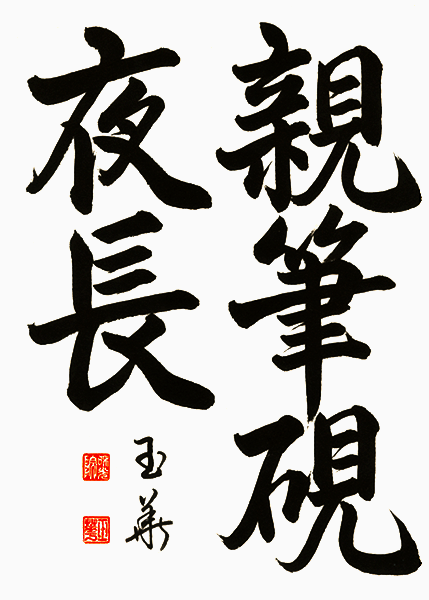 親筆硯
夜長
玉華